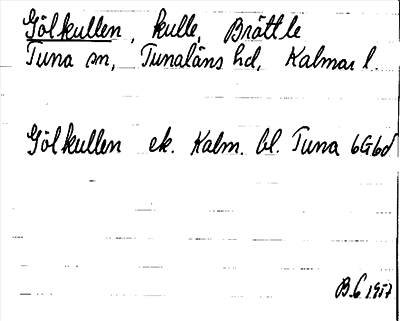 Gölkullen, kulle, Bråttle
Tuna sn, Tunaläns hd, Kalmar l.
Gölkullen ek. Kalm. bl. Tuna 6G6d
B.G. 1957